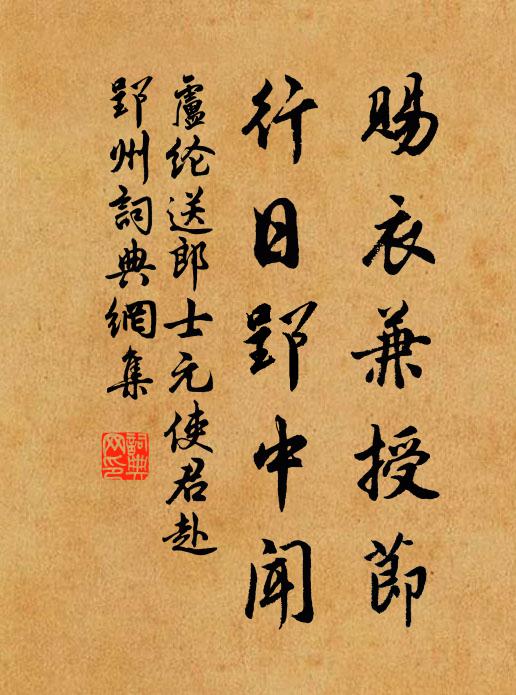 賜衣兼授節
行日郢中聞
盧纶送郎士元使君赴
郢州詞典網集
詞典网印